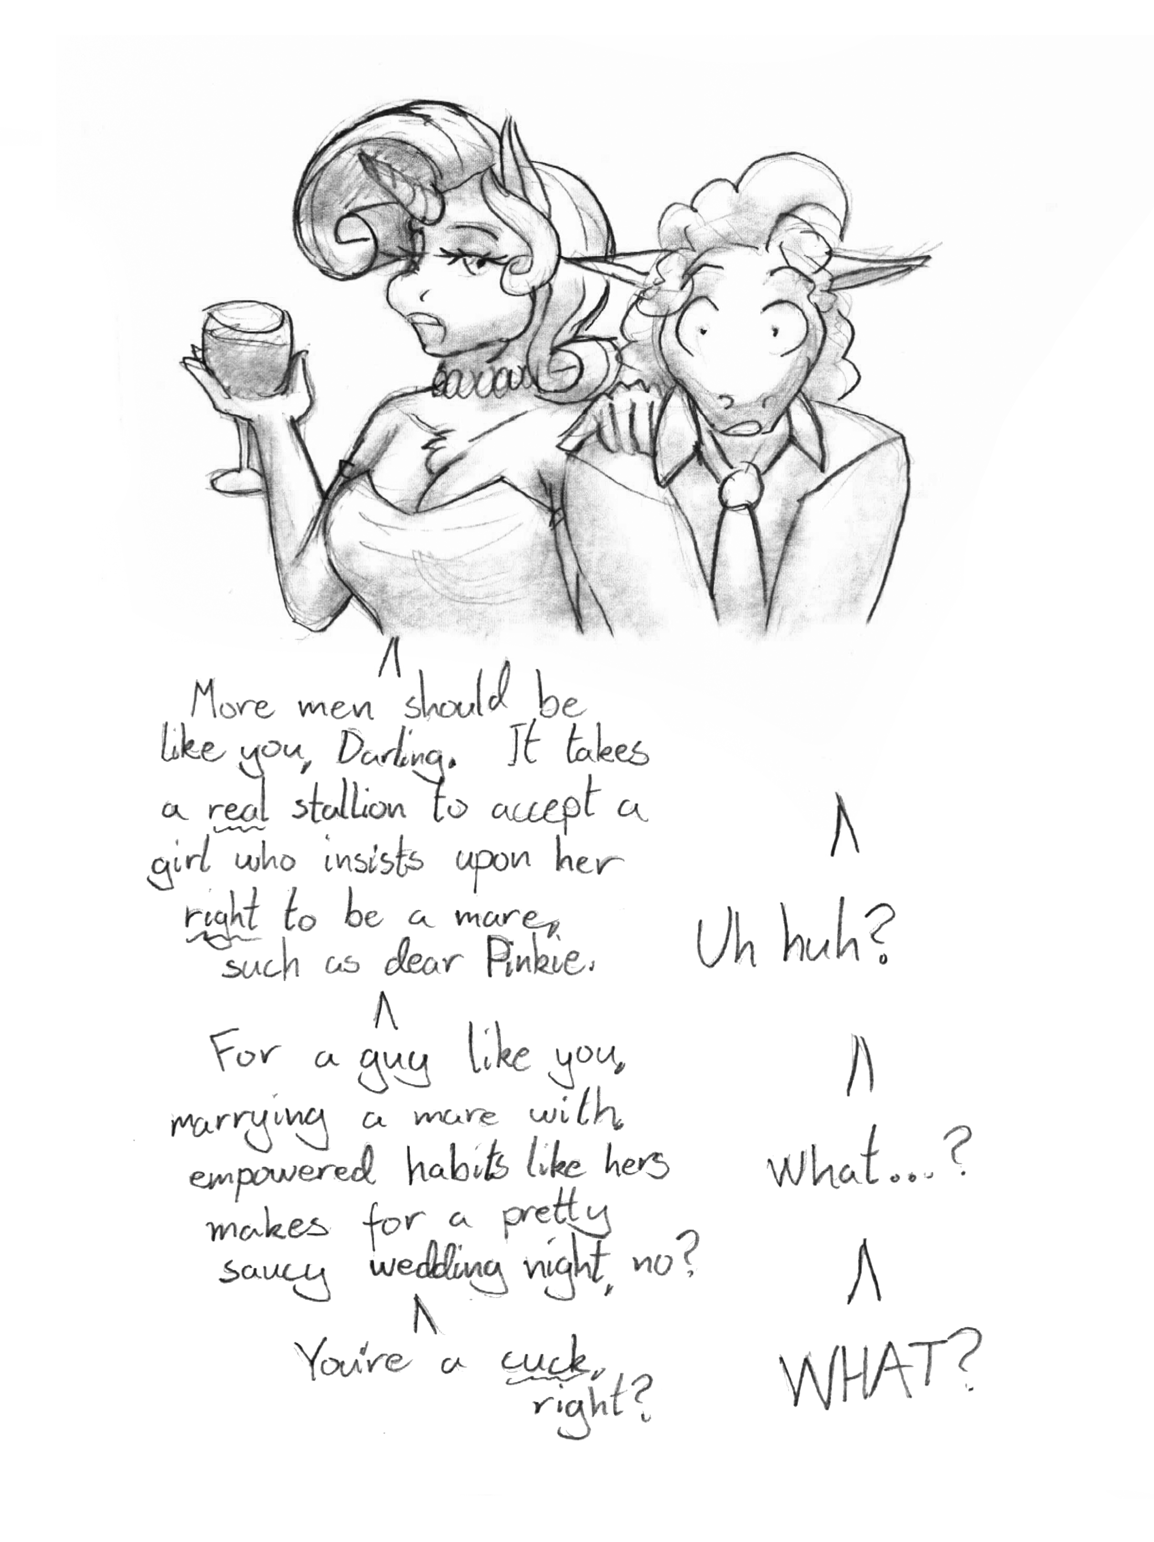 More men should be
like you, Darling. It takes
a real stallion to accept a
girl who insists upon her
right to be a mare,
such as dear Pinkie.
Uh huh?
For a guy like you,
marrying a mare with
empowered habits like hers
makes for a pretty
saucy wedding night, no?
what...?
You're a cuck,
right?
WHAT?